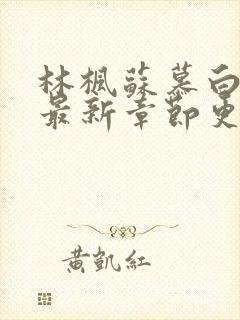 林楓蘇慕白
最新章節更
黃凱紅